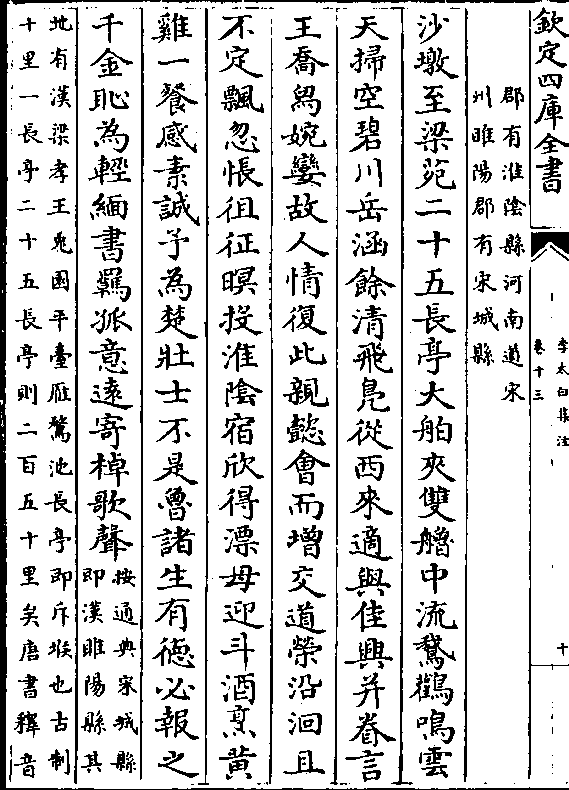 欽定四庫全書
李太白集注
卷十三
十
郡有淮陰縣河南道宋
州睢陽郡有宋城縣
沙墩至梁苑二十五長亭大舶夾雙艪中流鵞鸛鳴雲
天掃空碧川岳涵餘清飛鳬從西來適與佳興并眷言
王喬舄婉孌故人情復此親懿㑹而增交道榮沿洄且
不定飄忽悵徂征暝投淮陰宿欣得漂母迎斗酒烹黄
雞一餐感素誠予為楚壯士不是魯諸生有徳必報之
千金恥為輕緬書羇孤意逺寄棹歌聲
按通典宋城縣
即漢睢陽縣其
地有漢梁孝王兎園平臺雁鶩池長亭即斥堠也古制
十里一長亭二十五長亭則二百五十里矣唐書釋音